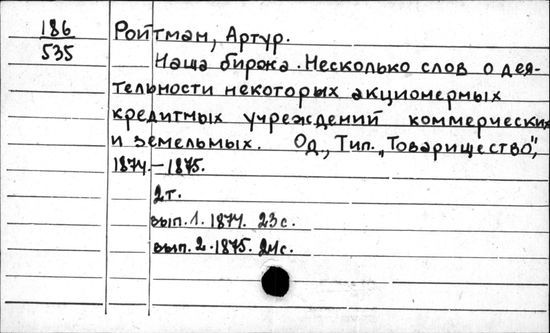 186
535
Ройтман, Артур.
Наша биржа. Несколько слов о дея-
тельности некоторых акционерных
кредитных учреждений коммерческих
и земельных. Од., Тип. „Товарищество",
1874.-1875.
2т.
вып. 1. 1874. 23 с.
вып. 2. 1875. 24с.